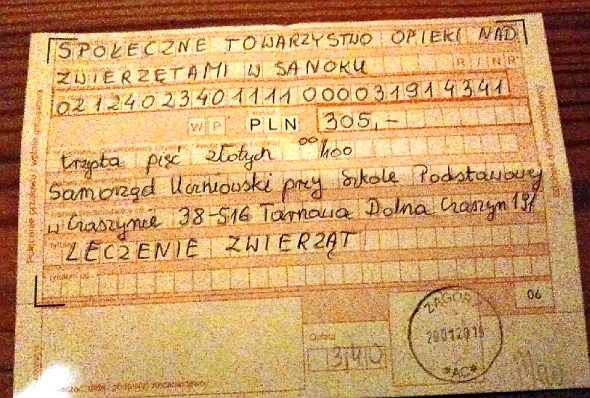 SPOŁECZNE TOWARZYSTWO OPIEKI NAD
ZWIERZĘTAMI W SANOKU
02124023401111000031914341
WP PLN 305,-
trzysta pięć złotych 00/100
Samorząd Uczniowski przy Szkole Podstawowej
w Czaszynie 38-516 Tarnawa Dolna Czaszyn 191
LECZENIE ZWIERZĄT
06
Opłata
3,40
ZAGÓRZ
*AC*